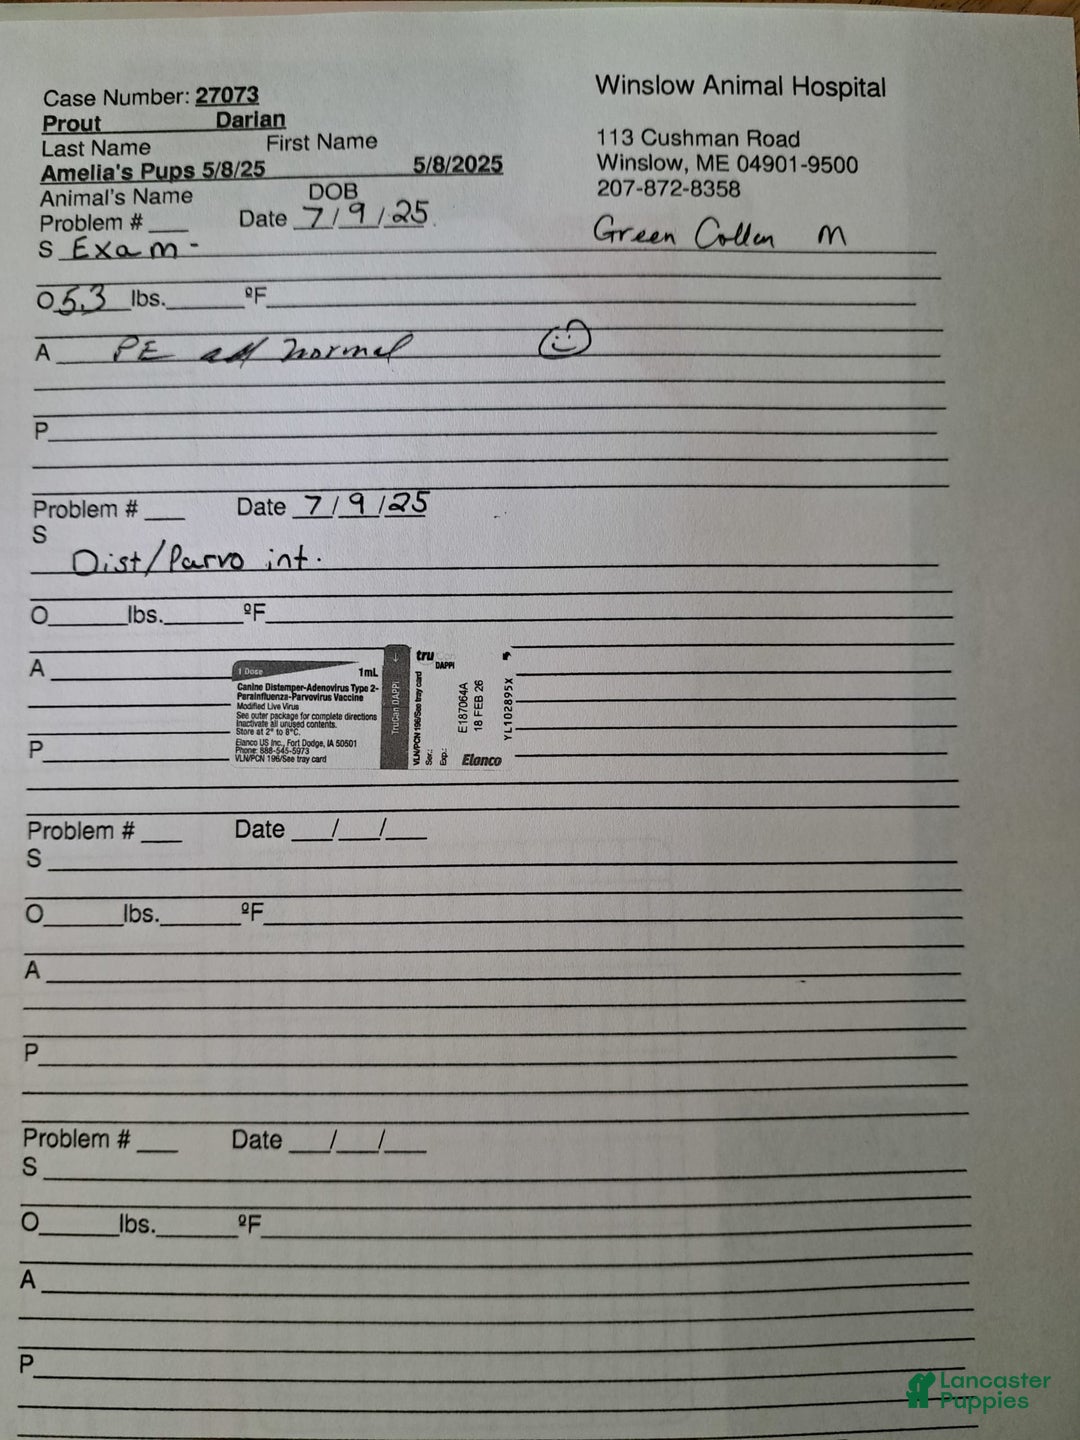 Case Number: 27073
Prout Darian
Last Name First Name
Amelia's Pups 5/8/25 5/8/2025
Animal's Name DOB
Problem # ___ Date 7/9/25
S Exam -
Winslow Animal Hospital
113 Cushman Road
Winslow, ME 04901-9500
207-872-8358
Green Coller M
O 5.3 lbs. ºF
A PE all normal
P
Problem # ___ Date 7/9/25
S
Dist/Parvo int.
O lbs. ºF
A
P
1 Dose 1mL
Canine Distemper-Adenovirus Type 2-
Parainfluenza-Parvovirus Vaccine
Modified Live Virus
See outer package for complete directions
Inactivate all unused contents.
Store at 2° to 8°C.
Elanco US Inc., Fort Dodge, IA 50501
Phone: 888-545-5973
VLN/PCN 196/See tray card
TruCan DAPPi
truCan
DAPPi
VLN/PCN 196/See tray card
Ser.: E187064A
Exp.: 18 FEB 26
YL102895X
Elanco
Problem # ___ Date ___/___/___
S
O lbs. ºF
A
P
Problem # ___ Date ___/___/___
S
O lbs. ºF
A
P
Lancaster
Puppies